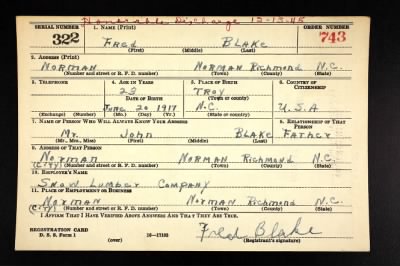 Honorable Discharge 12-13-45
SERIAL NUMBER 1. NAME (Print) ORDER NUMBER
322 Fred Blake 743
(First) (Middle) (Last)
2. ADDRESS (Print)
Norman Norman Richmond N.C.
(Number and street or R. F. D. number) (Town) (County) (State)
3. TELEPHONE 4. AGE IN YEARS 5. PLACE OF BIRTH 6. COUNTRY OF CITIZENSHIP
23 Troy
DATE OF BIRTH (Town or county)
June 20 1917 N.C. U.S.A
(Exchange) (Number) (Mo.) (Day) (Yr.) (State or country)
7. NAME OF PERSON WHO WILL ALWAYS KNOW YOUR ADDRESS 8. RELATIONSHIP OF THAT PERSON
Mr. John Blake Father
(Mr., Mrs., Miss) (First) (Middle) (Last)
9. ADDRESS OF THAT PERSON
Norman Norman Richmond N.C.
(City) (Number and street or R. F. D. number) (Town) (County) (State)
10. EMPLOYER'S NAME
Snow Lumber Company
11. PLACE OF EMPLOYMENT OR BUSINESS
Norman Norman Richmond N.C.
(City) (Number and street or R. F. D. number) (Town) (County) (State)
I AFFIRM THAT I HAVE VERIFIED ABOVE ANSWERS AND THAT THEY ARE TRUE.
REGISTRATION CARD Fred Blake
D. S. S. Form 1 (over) 16—17105 (Registrant's signature)